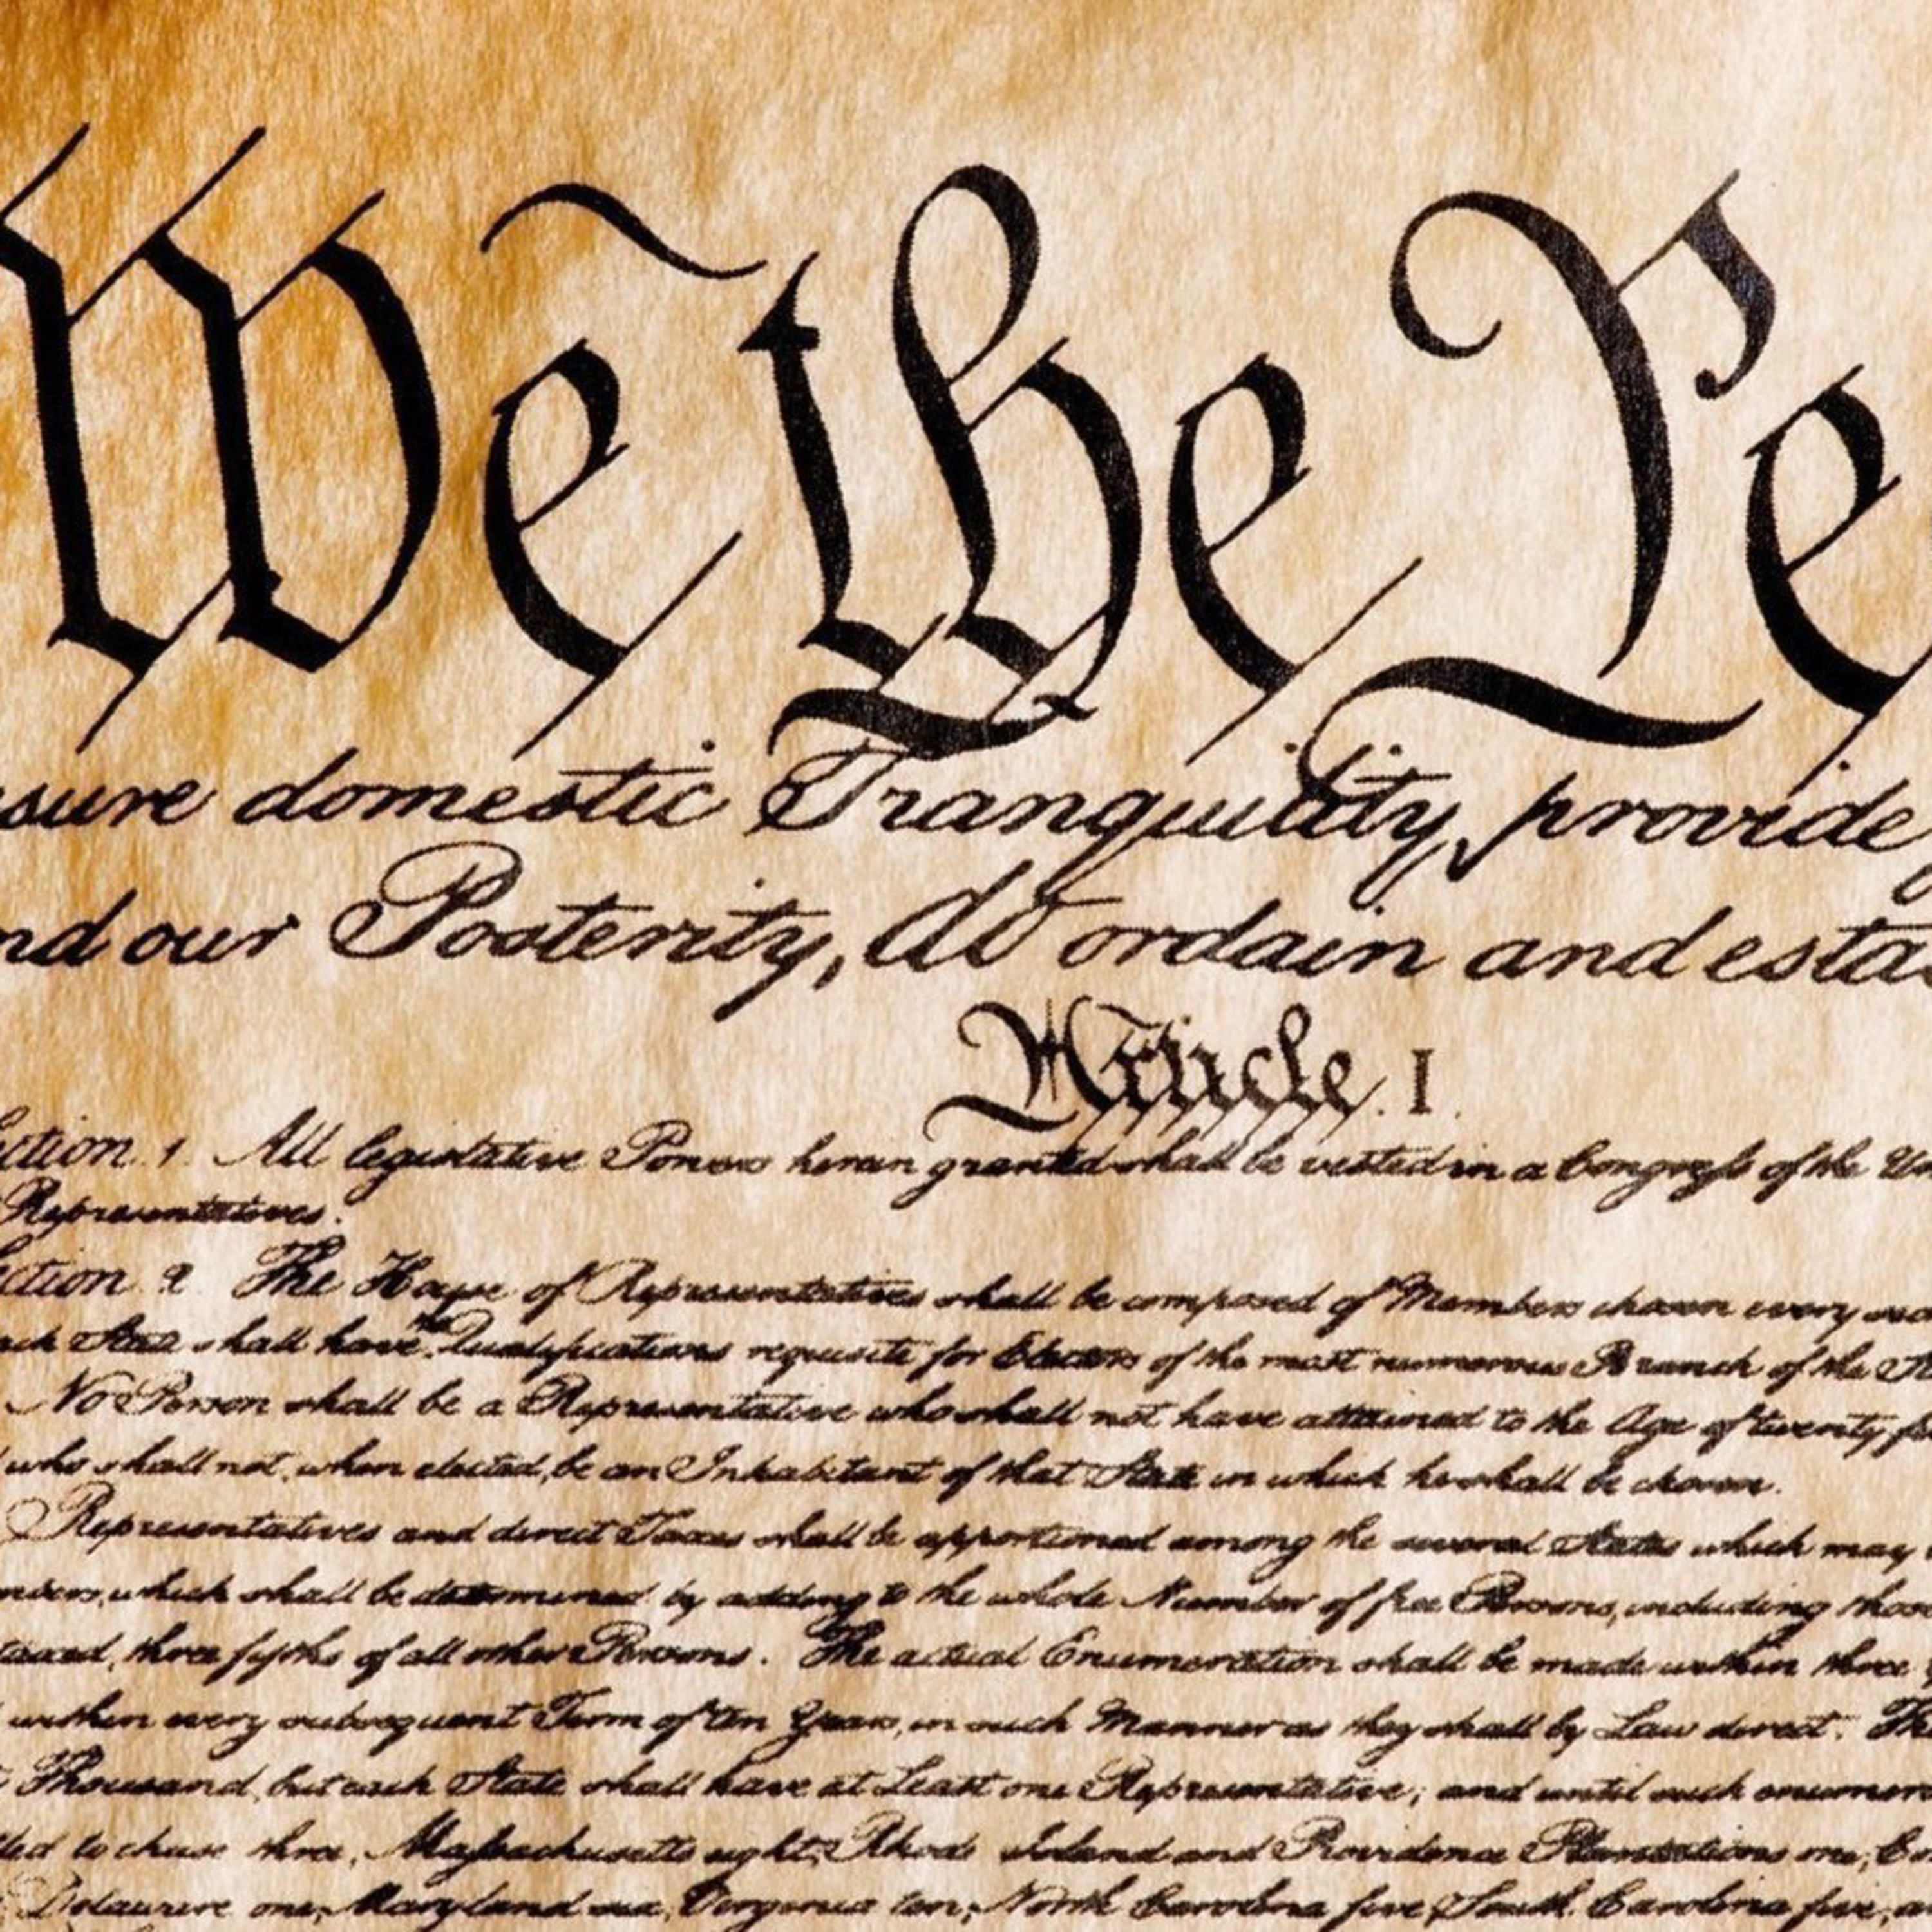 We the Pe
sure domestic Tranquility, provide
nd our Posterity, do ordain and esta
Article. I.
ction. 1. All legislative Powers herein granted shall be vested in a Congress of the Un
Representatives.
ction. 2. The House of Representatives shall be composed of Members chosen every sec
ach State shall have the Qualifications requisite for Electors of the most numerous Branch of the St
No Person shall be a Representative who shall not have attained to the Age of twenty fi
who shall not, when elected, be an Inhabitant of that State in which he shall be chosen.
Representatives and direct Taxes shall be apportioned among the several States which may
mbers, which shall be determined by adding to the whole Number of free Persons, including thos
taxed, three fifths of all other Persons. The actual Enumeration shall be made within three
within every subsequent Term of ten Years, in such Manner as they shall by Law direct. The
Thousand, but each State shall have at Least one Representative; and until such enumer
tled to chuse three, Massachusetts eight, Rhode Island and Providence Plantations one, Co
Delaware one, Maryland six, Virginia ten, North Carolina five, South Carolina five, a